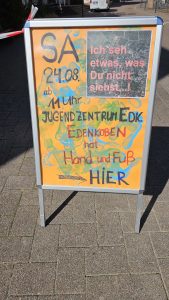 SA
24.08.
ab
11 Uhr
Ich seh
etwas, was
Du nicht
siehst...!
JUGENDZENTRUM EDK.
EDENKOBEN
hat
Hand und Fuß
HIER